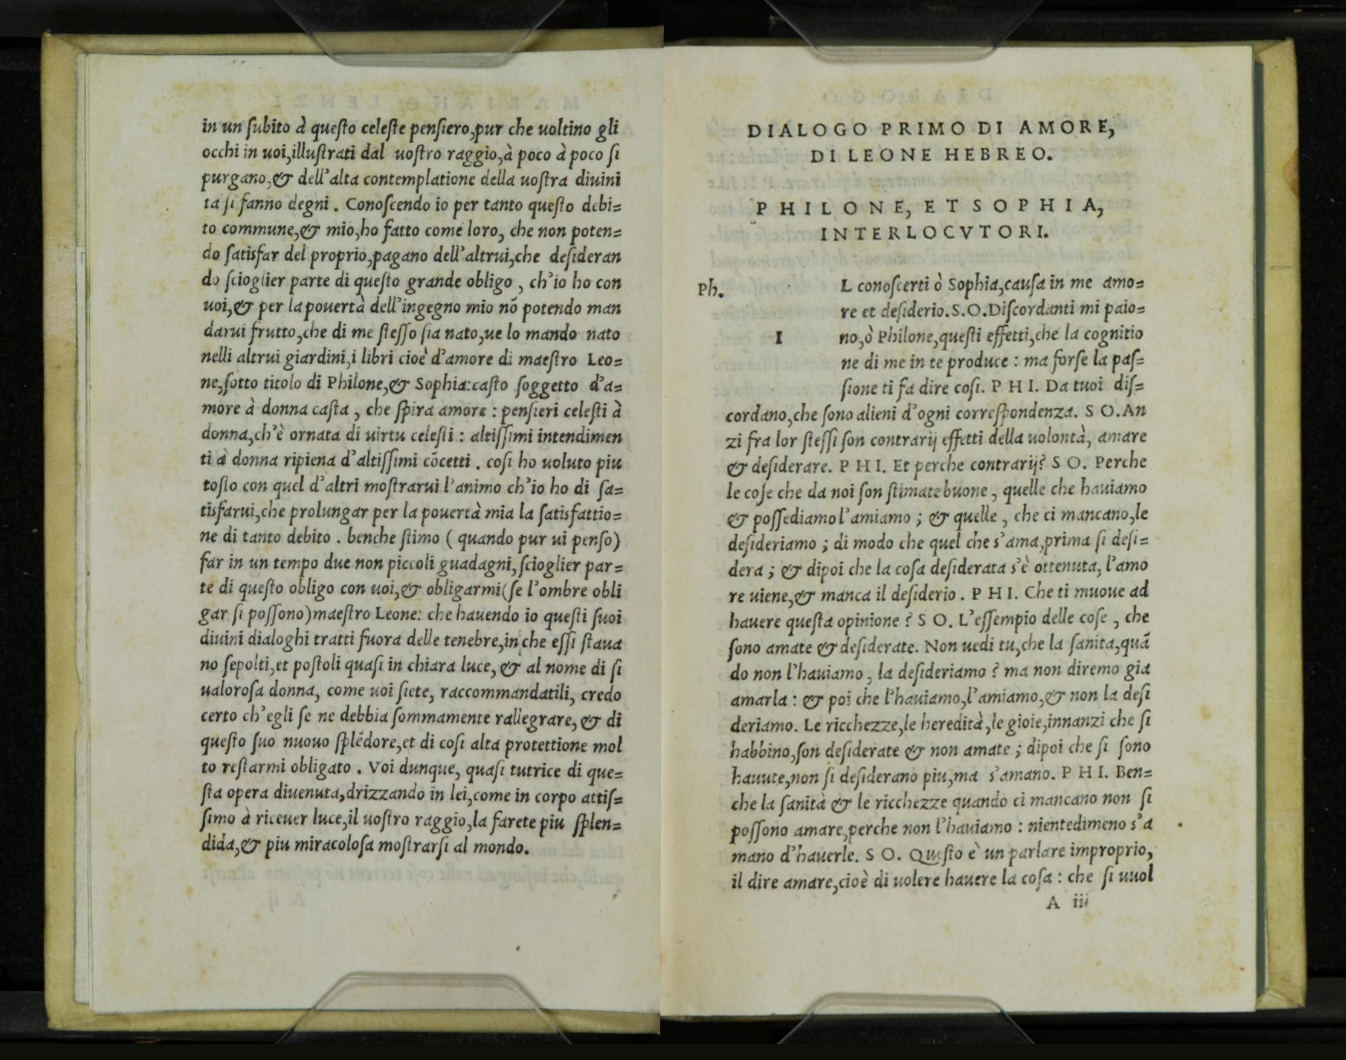 in un ſubito à queſto celeſte penſiero,pur che uoltino gli
occhi in uoi,illuſtrati dal uoſtro raggio,à poco à poco ſi
purgano,& dell'alta contemplatione della uoſtra diuini
tà ſi fanno degni . Conoſcendo io per tanto queſto debi=
to commune,& mio,ho fatto come loro, che non poten=
do ſatisfar del proprio,pagano dell'altrui,che deſideran
do ſcioglier parte di queſto grande obligo , ch'io ho con
uoi,& per la pouertà dell'ingegno mio nõ potendo man
darui frutto,che di me ſteſſo ſia nato,ue lo mando nato
nelli altrui giardini,i libri cioè d'amore di maeſtro Leo=
ne,ſotto titolo di Philone,& Sophia:caſto ſoggetto d'a=
more à donna caſta , che ſpira amore : penſieri celeſti à
donna,ch'è ornata di uirtu celeſti : altiſſimi intendimen
ti à donna ripiena d'altiſſimi cõcetti . coſi ho uoluto piu
toſto con quel d'altri moſtrarui l'animo ch'io ho di ſa=
tisfarui,che prolungar per la pouertà mia la ſatisfattio=
ne di tanto debito . benche ſtimo ( quando pur ui penſo)
far in un tempo due non piccoli guadagni,ſcioglier par=
te di queſto obligo con uoi,& obligarmi(ſe l'ombre obli
gar ſi poſſono)maeſtro Leone: che hauendo io queſti ſuoi
diuini dialoghi tratti fuora delle tenebre,in che eſſi ſtaua
no ſepolti,et poſtoli quaſi in chiara luce, & al nome di ſi
ualoroſa donna, come uoi ſiete, raccommandatili, credo
certo ch'egli ſe ne debbia ſommamente rallegrare, & di
queſto ſuo nuouo ſplẽdore,et di coſi alta protettione mol
to reſtarmi obligato . Voi dunque, quaſi tutrice di que=
ſta opera diuenuta,drizzando in lei,come in corpo attiſ=
ſimo à riceuer luce,il uoſtro raggio,la farete piu ſplen=
dida,& piu miracoloſa moſtrarſi al mondo.
DIALOGO PRIMO DI AMORE,
DI LEONE HEBREO.
PHILONE, ET SOPHIA,
INTERLOCVTORI.
Ph. L conoſcerti ò Sophia,cauſa in me amo=
re et deſiderio.S.O.Diſcordanti mi paio=
I no,ò Philone,queſti effetti,che la cognitio
ne di me in te produce : ma forſe la paſ=
ſione ti fa dire coſi. P H I. Da tuoi diſ=
cordano,che ſono alieni d'ogni correſpondenza. S O.An
zi fra lor ſteſſi ſon contrarij effetti della uolontà, amare
& deſiderare. P H I. Et perche contrarij? S O. Perche
le coſe che da noi ſon ſtimate buone , quelle che hauiamo
& poſſediamo l'amiamo ; & quelle , che ci mancano,le
deſideriamo ; di modo che quel che s'ama,prima ſi deſi=
dera ; & dipoi che la coſa deſiderata s'è ottenuta, l'amo
re uiene,& manca il deſiderio . P H I. Che ti muoue ad
hauere queſta opinione ? S O. L'eſſempio delle coſe , che
ſono amate & deſiderate. Non uedi tu,che la ſanita,quã
do non l'hauiamo , la deſideriamo ? ma non diremo gia
amarla : & poi che l'hauiamo,l'amiamo,& non la deſi
deriamo. Le ricchezze,le heredità,le gioie,innanzi che ſi
habbino,ſon deſiderate & non amate ; dipoi che ſi ſono
hauute,non ſi deſiderano piu,ma s'amano. P H I. Ben=
che la ſanità & le ricchezze quando ci mancano non ſi
poſſono amare,perche non l'hauiamo : nientedimeno s'a
mano d'hauerle. S O. Queſto è un parlare improprio,
il dire amare,cioè di uolere hauere la coſa : che ſi uuol
A iii